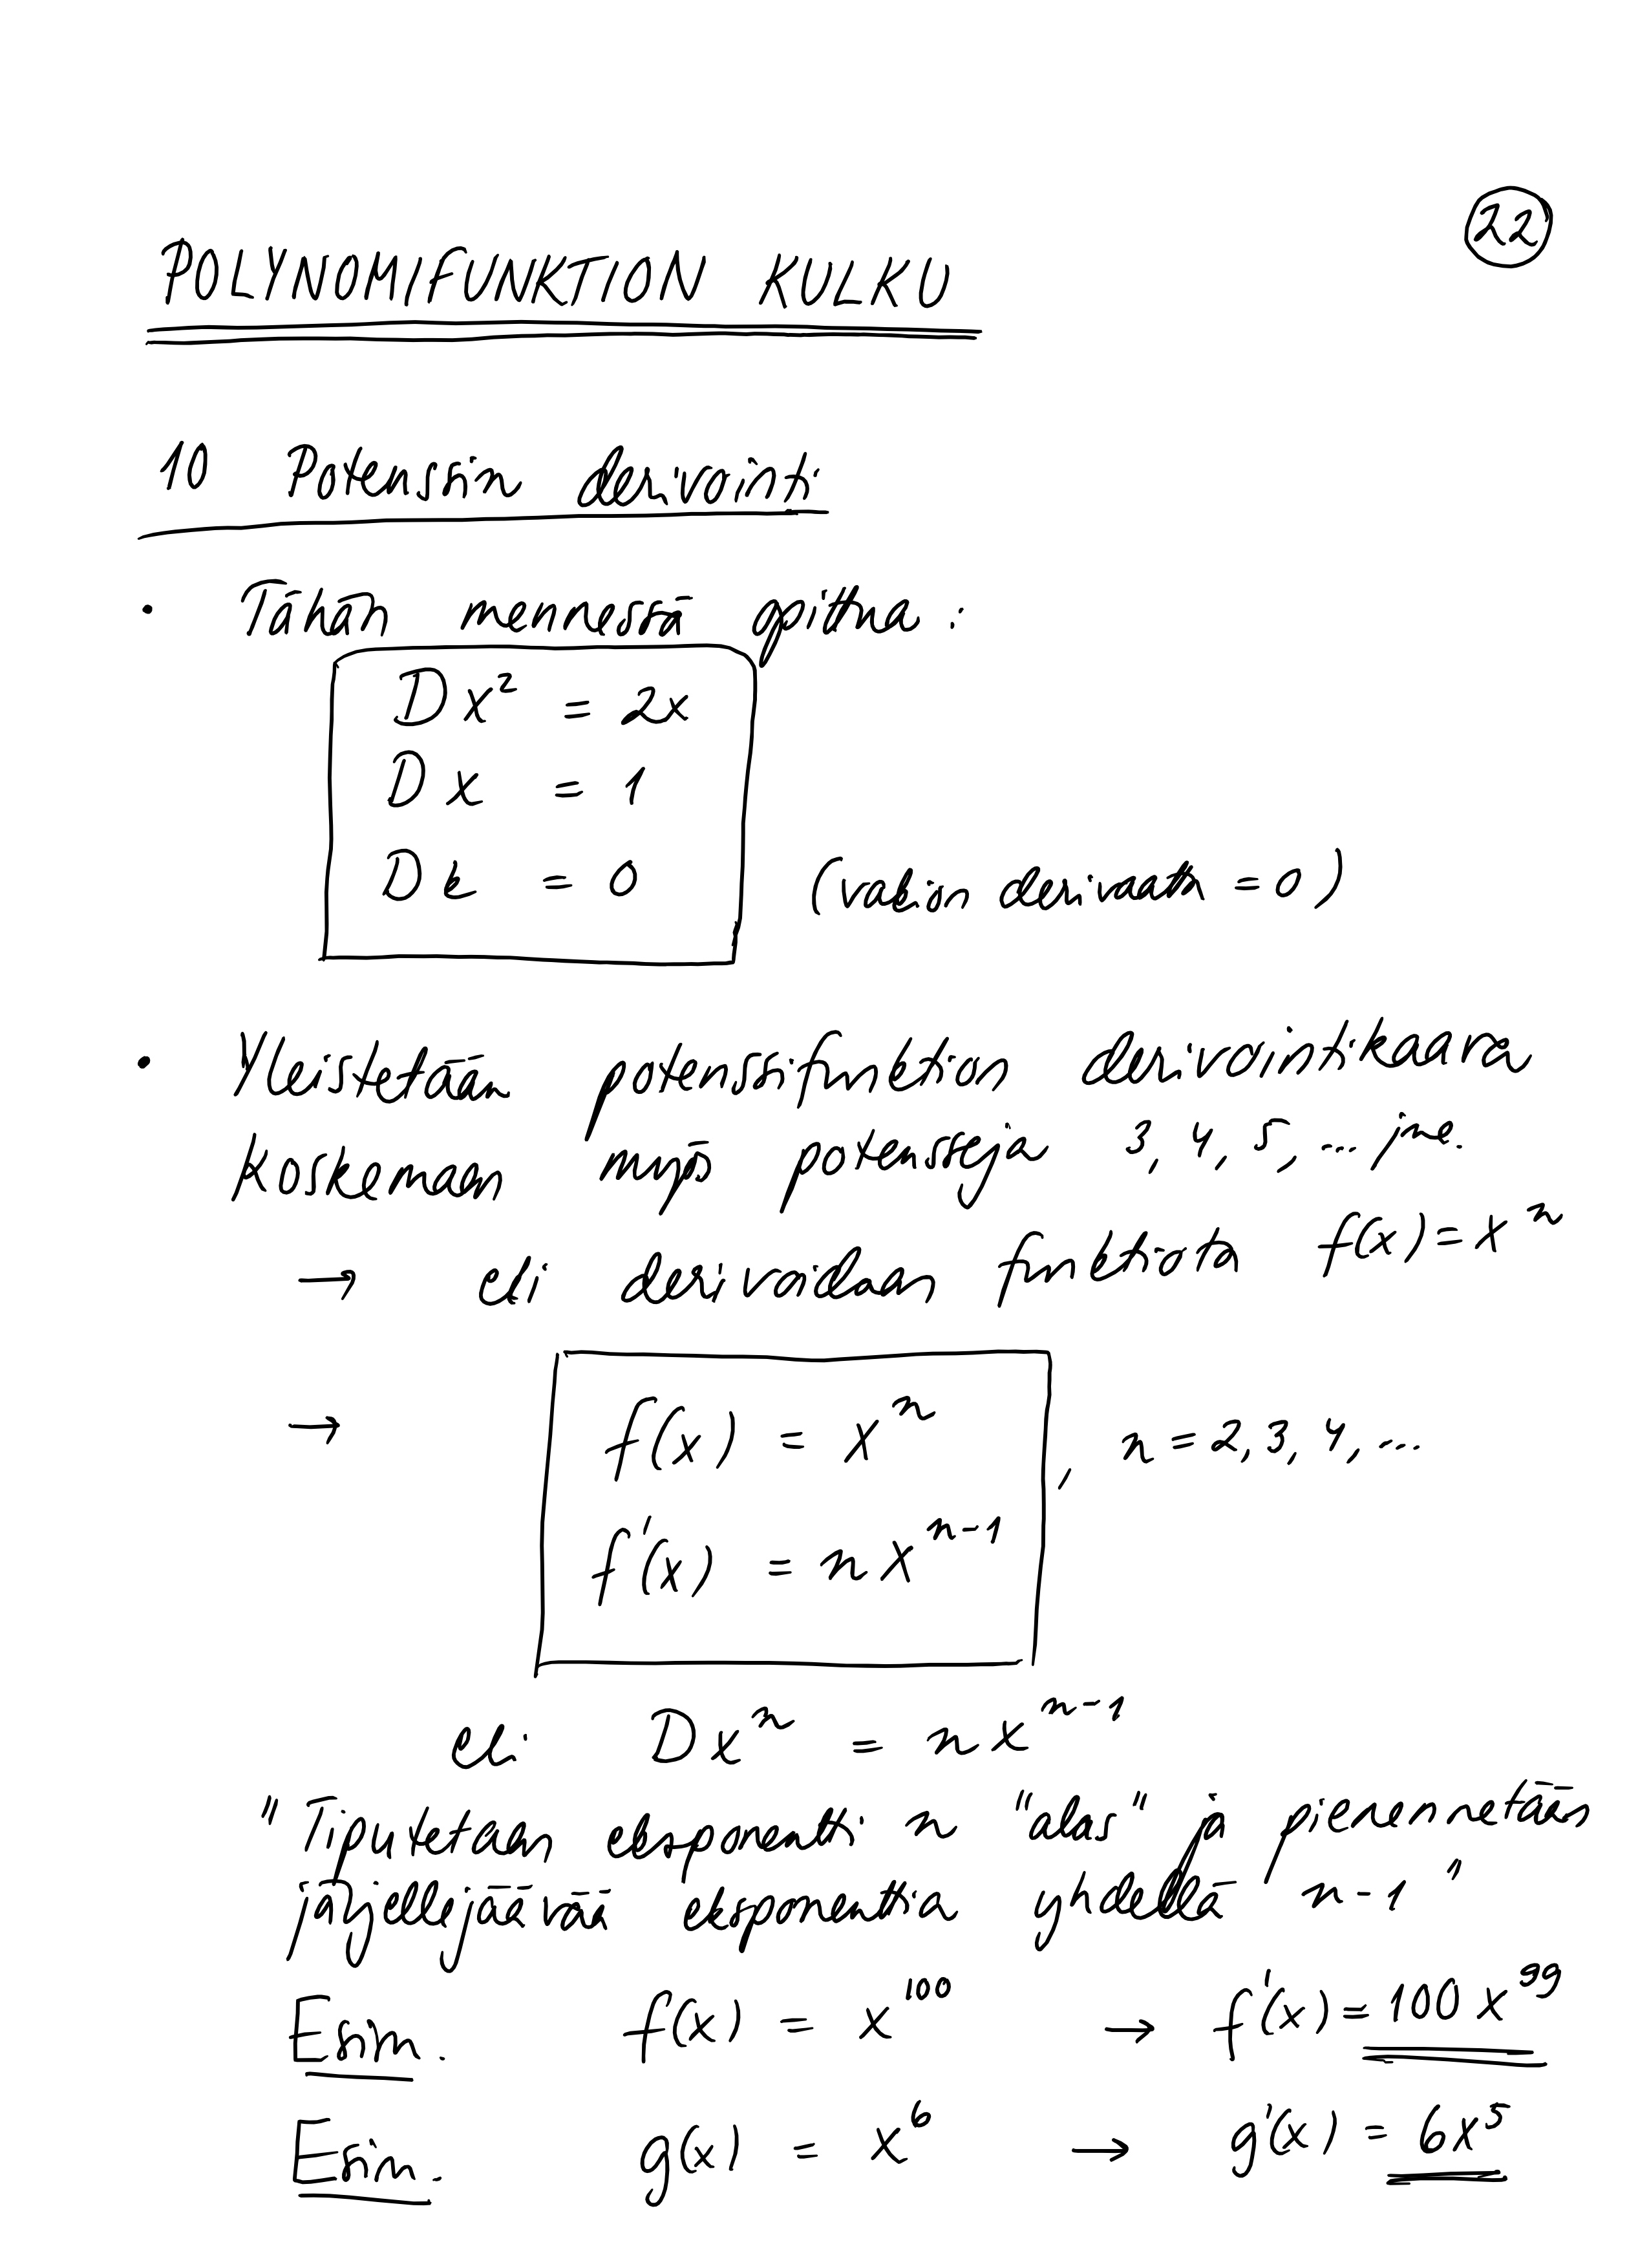 22
POLYNOMIFUNKTION KULKU
10 Potenssin derivointi
• Tähän mennessä opittua:
Dx² = 2x
Dx = 1
Dk = 0 (vakion derivaatta = 0)
• Yleistetään potenssifunktion derivointikaava
koskemaan myös potensseja 3, 4, 5, ... jne.
→ eli derivoidaan funktiota f(x) = xⁿ
→ f(x) = xⁿ , n = 2, 3, 4, ...
f'(x) = nxⁿ⁻¹
eli Dxⁿ = nxⁿ⁻¹
"Tiputetaan eksponentti n "alas" ja pienennetään
järjellejäävää eksponenttia yhdellä n-1"
Esim. f(x) = x¹⁰⁰ → f'(x) = 100x⁹⁹
Esim. g(x) = x⁶ → g'(x) = 6x⁵